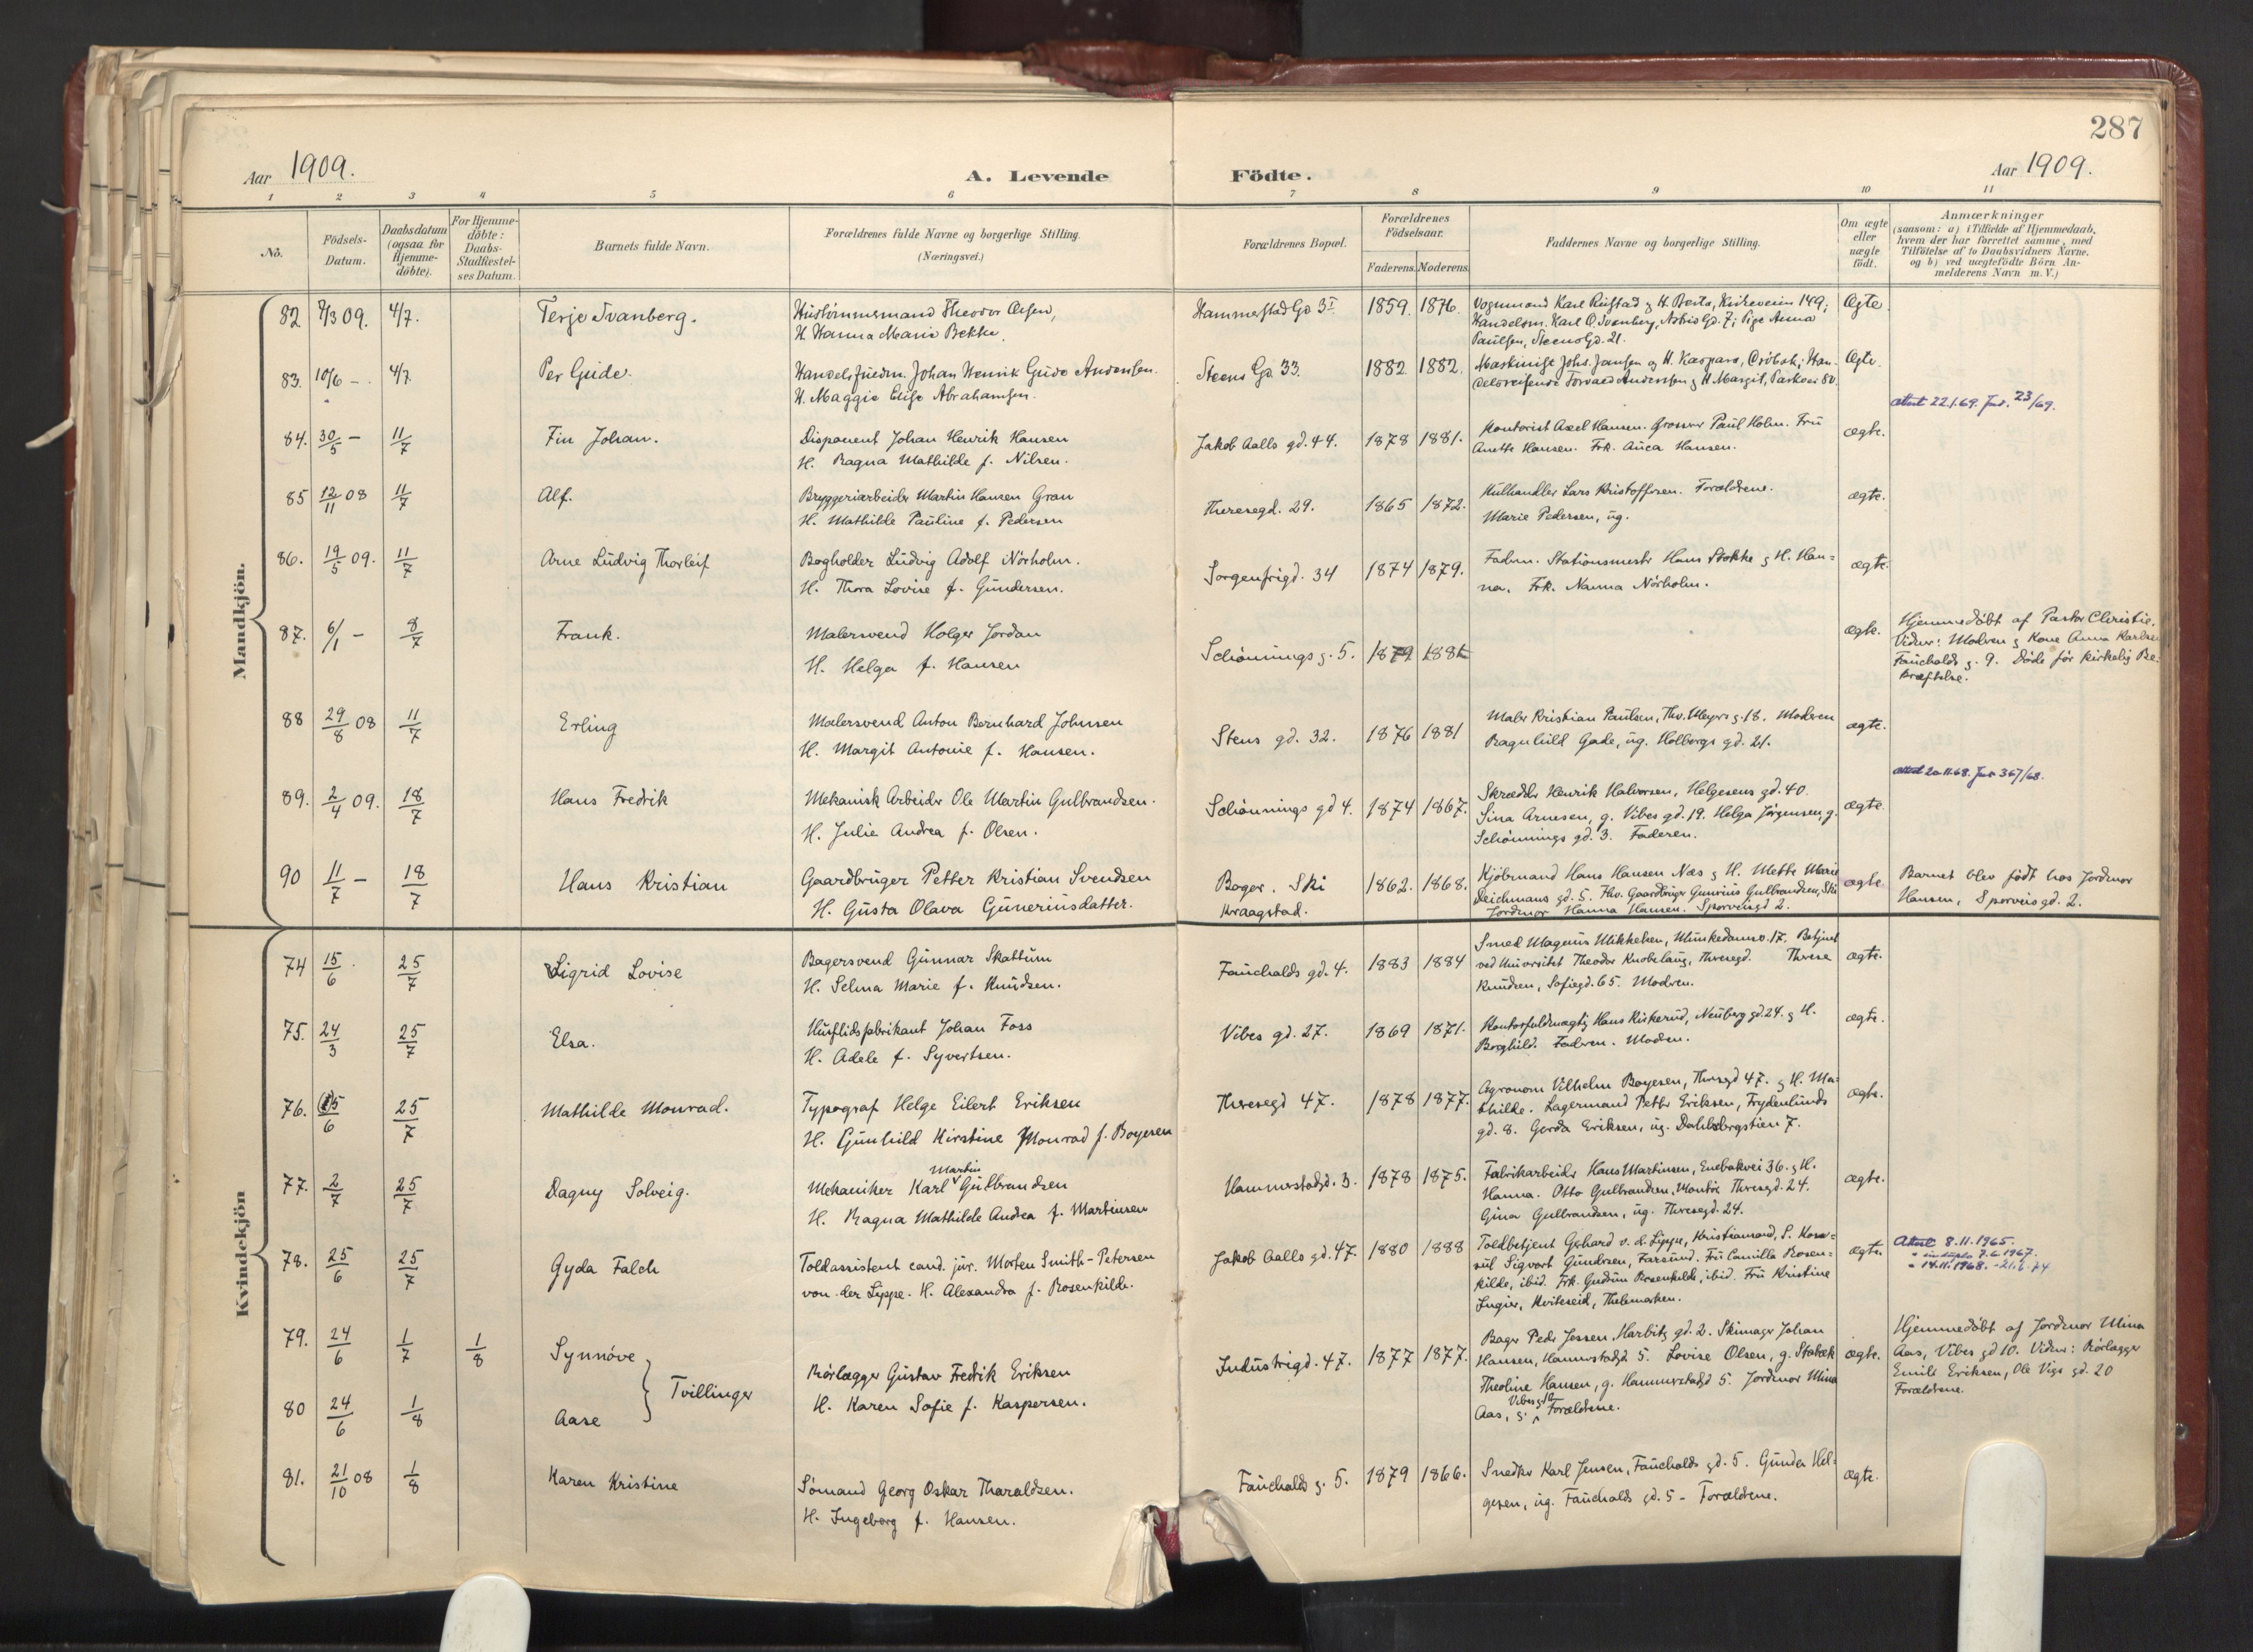 287
Aar 1909.
A. Levende
Födte.
Aar 1909.
1 2 3 4 5 6 7 8 9 10 11
No.
Födsels-
Datum.
Daabsdatum
(ogsaa for
Hjemme-
döbte).
For Hjemme-
döbte:
Daabs-
Stadfæstel-
ses Datum.
Barnets fulde Navn.
Forældrenes fulde Navne og borgerlige Stilling.
(Næringsvei.)
Forældrenes Bopæl.
Forældrenes
Födselsaar.
Faderens. Moderens.
Faddernes Navne og borgerlige Stilling.
Om ægte
eller
uægte
födt.
Anmærkninger
(saasom: a) i Tilfælde af Hjemmedaab,
hvem der har forrettet samme, med
Tilföielse af to Daabsvidners Navne.
og b) ved uægtefödte Börn An-
melderens Navn m. V.)
Mandkjön.
82 /3 09. 4/7. Terje Svanberg.
Theodor Olsen,
H. Hanna Marie Bekke.
Hammerstad Gd 3 I 1859. 1876.
Vognmand Karl Rustad og H. Berta, Kirkeveien 149;
Handelsm. Karl O. Svanberg, Gd. 7; Pige Anna
Paulsen, Steens Gd. 21.
Ægte.
83. 10/6 – 4/7 Per Gude.
Johan Henrik Gude Andersen.
H. Maggie Elise Abrahamsen.
Steens Gd. 33. 1882. 1882.
Maskinist Johs. Jansen og H. Kaspara, Dröbak; Han-
delsreisende Torvald Anderssen og H. Margit, Parkvei 80.
Ægte.
attest 22.1.69. Jnr. 23/69.
84. 30/5 – 11/7 Fin Johan.
Disponent Johan Henrik Hansen
H. Ragna Mathilde f. Nilsen.
Jakob Aalls gd. 44. 1878 1881.
Kontorist Axel Hansen. Grosserer Paul Holm. Fru
Anette Hansen. Frk. Hansen.
ægte.
85 12/11 08 11/7 Alf.
Bryggeriarbeider Martin Hansen Gran
H. Mathilde Pauline f. Pedersen
Theresegd. 29. 1865 1872.
Kulhandler Lars Kristoffersen. Forældrene.
Marie Pedersen, ug.
ægte.
86. 19/5 09. 11/7 Arne Ludvig Thorleif
Bogholder Ludvig Adolf Nörholm.
H. Thora Lovise f. Gundersen.
Sorgenfrigd. 34 1874 1879.
Faderen. Stationsmester Hans Stokke og H. Han=
na. Frk. Nanna Nörholm.
ægte.
87. 6/1 – 8/7 Frank.
Malersvend Holger Jordan
H. Helga f. Hansen
Schönnings g. 5. 1879 1881
ægte.
Hjemmedöbt af Pastor Christie.
Vidner: Moderen og Kone Anna Karlsen
Fauchalds g. 9. Döde för kirkelig Be-
kræftelse.
88 29/8 08 11/7 Erling
Malersvend Anton Bernhard Johnsen
H. Margit Antonie f. Hansen.
Stens gd. 32. 1876 1881
Maler Kristian Paulsen, Thv. Meyers g. 18. Moderen
Ragnhild Gade, ug. Holbergs gd. 21.
ægte.
attest 20.11.68. Jnr 367/68.
89. 2/4 09. 18/7 Hans Fredrik
Mekanisk Arbeider Ole Martin Gulbrandsen.
H. Julie Andrea f. Olsen.
Schönnings gd 4. 1874 1867.
Skrædder Henrik Halvorsen, Helgesens gd. 40.
Sina Arnesen, g. Vibes gd. 19. Helga Jörgensen, g.
Schönnings gd. 3. Faderen.
ægte.
90 11/7 – 18/7 Hans Kristian
Gaardbruger Petter Kristian Svendsen
H. Gusta Olava Guneriusdatter.
Bager. Ski
Kraagstad. 1862. 1868.
Kjöbmand Hans Hansen Næs og H. Mette Marie
Deichmans gd. 5. Thv. Gaardbruger Gunerius Gulbrandsen, Ski
Jordmor Hanna Hansen. Sporveisgd 2.
ægte.
Barnet blev födt hos Jordmor
Hansen, Sporveisgd. 2.
Kvindekjön
74 15/6 . 25/7 Sigrid Lovise
Bagersvend Gunnar Skattum
H. Selma Marie f. Knudsen.
Fauchalds gd. 4. 1883 1884
Smed Magnus Mikkelsen, Munkedamsv. 17. Betjent
ved Universitet Theodor Knobelaug, Theresegd. Therese
Knudsen, Sofiegd. 65. Moderen.
ægte.
75. 24/3 25/7 Elsa.
Husflidsfabrikant Johan Foss
H. Adele f. Syvertsen.
Vibes gd. 27. 1869 1871.
Kontorfuldmægtig Hans Kiskerud, Neuberg gd. 24. og H.
Borghild. Faderen. Moderen.
ægte.
76. 15/6 25/7 Mathilde Monrad.
Typograf Helge Eilert Eriksen
H. Gunhild Kirstine Monrad f. Boyesen
Theresegd 47. 1878 1877.
Agronom Vilhelm Boyesen, Theresegd 47. og H. Ma-
thilde. Lagermand Petter Eriksen, Frydenlunds
gd. 8. Gerda Eriksen, ug. Dahlsbergstien 7.
ægte.
77. 2/7 25/7 Dagny Solveig.
Martin
Mekaniker Karl Gulbrandsen
H. Ragna Mathilde Andrea f. Martinsen
Hammerstadgd. 3. 1878 1875.
Fabrikarbeider Hans Martinsen, Enebakvei 36. og H.
Hanna. Otto Gulbrandsen, Montör Theresegd. 24.
Gina Gulbrandsen, ug. Theresegd. 24.
ægte.
78. 25/6 25/7 Gyda Falch
Toldassistent cand. jur. Morten Smith-Petersen
von der Lippe. H. Alexandra f. Rosenkilde.
Jakob Aalls gd. 47. 1880 1888
Toldbetjent Gerhard v. d. Lippe, Kristiansand, S. Kon-
sul Sigvart Gundersen, Farsund. Fru Camilla Rosen=
kilde, ibid. Frk. Gudrun Rosenkilde, ibid. Fru Kristine
Ingier, Kviteseid, Thelemarken.
ægte.
Attest 8.11.1965.
" in duplo 7.6.1967.
" 14.11.1968. - 21.6.74
79. 24/6 1/7 1/8 Synnöve
80 24/6 1/8 Aase
} Tvillinger
Rörlægger Gustav Fredrik Eriksen
H. Karen Sofie f. Kaspersen.
Industrigd. 47. 1877 1877.
Bager Peder Jessen, Harbitz gd. 2. Skomager Johan
Hansen, Hammerstadgd 5. Lovise Olsen, g. Stabæk
Theoline Hansen, g. Hammerstadgd 5. Jordmor Mina
Vibes gd 10
Aas, g. Forældrene.
ægte.
Hjemmedöbt af Jordmor Mina
Aas, Vibes gd 10. Vidner: Rörlægger
Emil Eriksen, Ole Vigs gd. 20
Forældrene.
81. 21/10 08 1/8 Karen Kristine
Sömand Georg Oskar Tharaldsen.
H. Ingeborg f. Hansen.
Fauchalds g. 5. 1879 1866.
Snedker Karl Jensen, Fauchalds gd. 5. Gunda Hel-
gesen, ug. Fauchalds gd. 5 – Forældrene.
ægte.